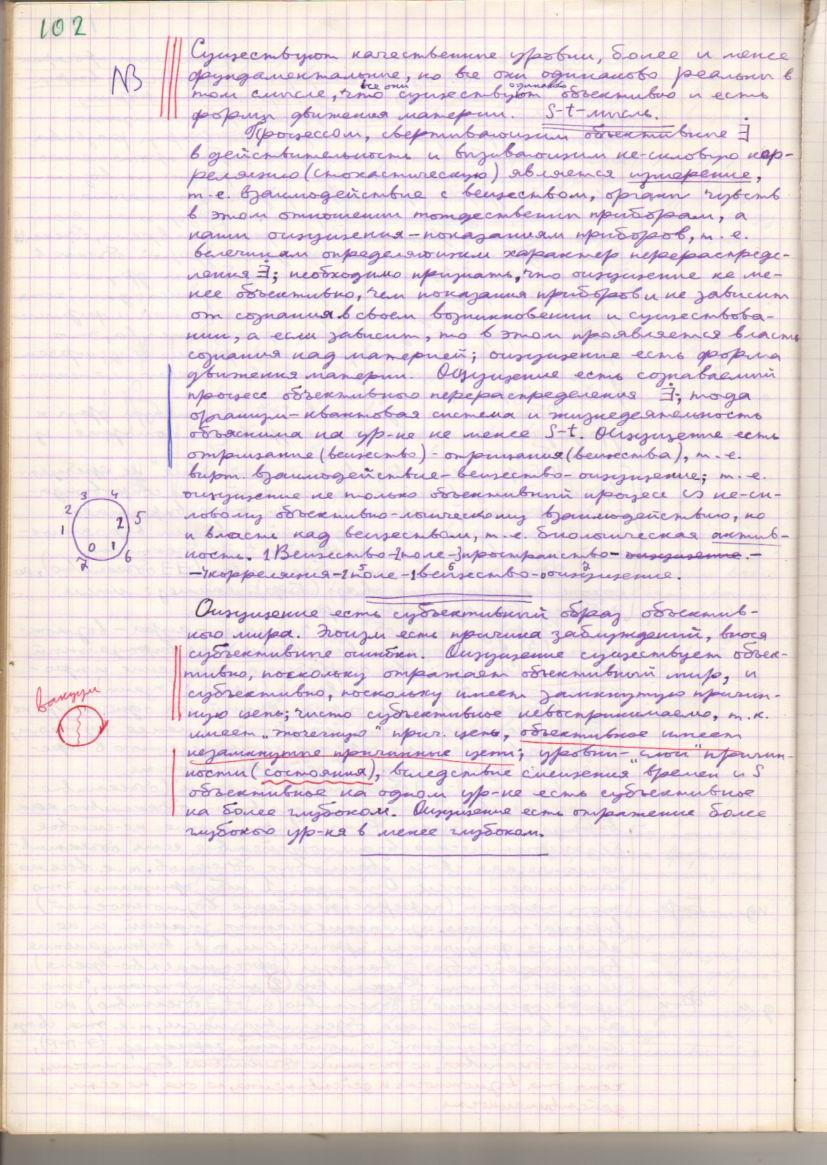 102
NB
Существуют качественные уровни, более и менее
фундаментальные, но все они одинаково реальны в
все они одинаково
том смысле, что существуют объективно и есть
формы движения материи. S-t-мысль.
Процессом, свертывающим объективные Ǝ
в действительность и вызывающим не-силовую кор-
реляцию (стохастическую) является измерение,
т.е. взаимодействие с веществом, органы чувств
в этом отношении тождественны приборам, а
наши ощущения - показаниям приборов, т.е.
величинам определяющим характер перераспреде-
ления Ǝ; необходимо признать, что ощущение не ме-
нее объективно, чем показания приборов и не зависит
от сознания в своем возникновении и существова-
нии, а если зависит, то в этом проявляется власть
сознания над материей; ощущение есть форма
движения материи. Ощущение есть сознаваемый
процесс объективного перераспределения Ǝ; тогда
организм-квантовая система и жизнедеятельность
объяснима на ур-не не менее S-t. Ощущение есть
отрицание (вещество) - отрицания (вещества), т.е.
вирт. взаимодействие-вещество-ощущение; т.е.
ощущение не только объективный процесс по не-си-
ловому объективно-логическому взаимодействию, но
и власть над веществом, т.е. биологическая актив-
ность. 1 Вещество-2поле-3пространство-ощущение.-
-4корреляция-5поле-6вещество-7ощущение.
3 4
2 5
1 2
0 1 6
7
Ощущение есть субъективный образ объектив-
ного мира. Эгоизм есть причина заблуждений, внося
субъективные ошибки. Ощущение существует объек-
тивно, поскольку отражает объективный мир, и
субъективно, поскольку имеет замкнутую причин-
ную цепь; чисто субъективное невоспринимаемо, т.к.
имеет "точечную" прич. цепь, объективное имеет
незамкнутые причинные цепи; уровни-"слои" причин-
ности (состояния), вследствие смещения времен и S
объективное на одном ур-не есть субъективное
на более глубоком. Ощущение есть отражение более
глубокого ур-ня в менее глубоком.
вакуум